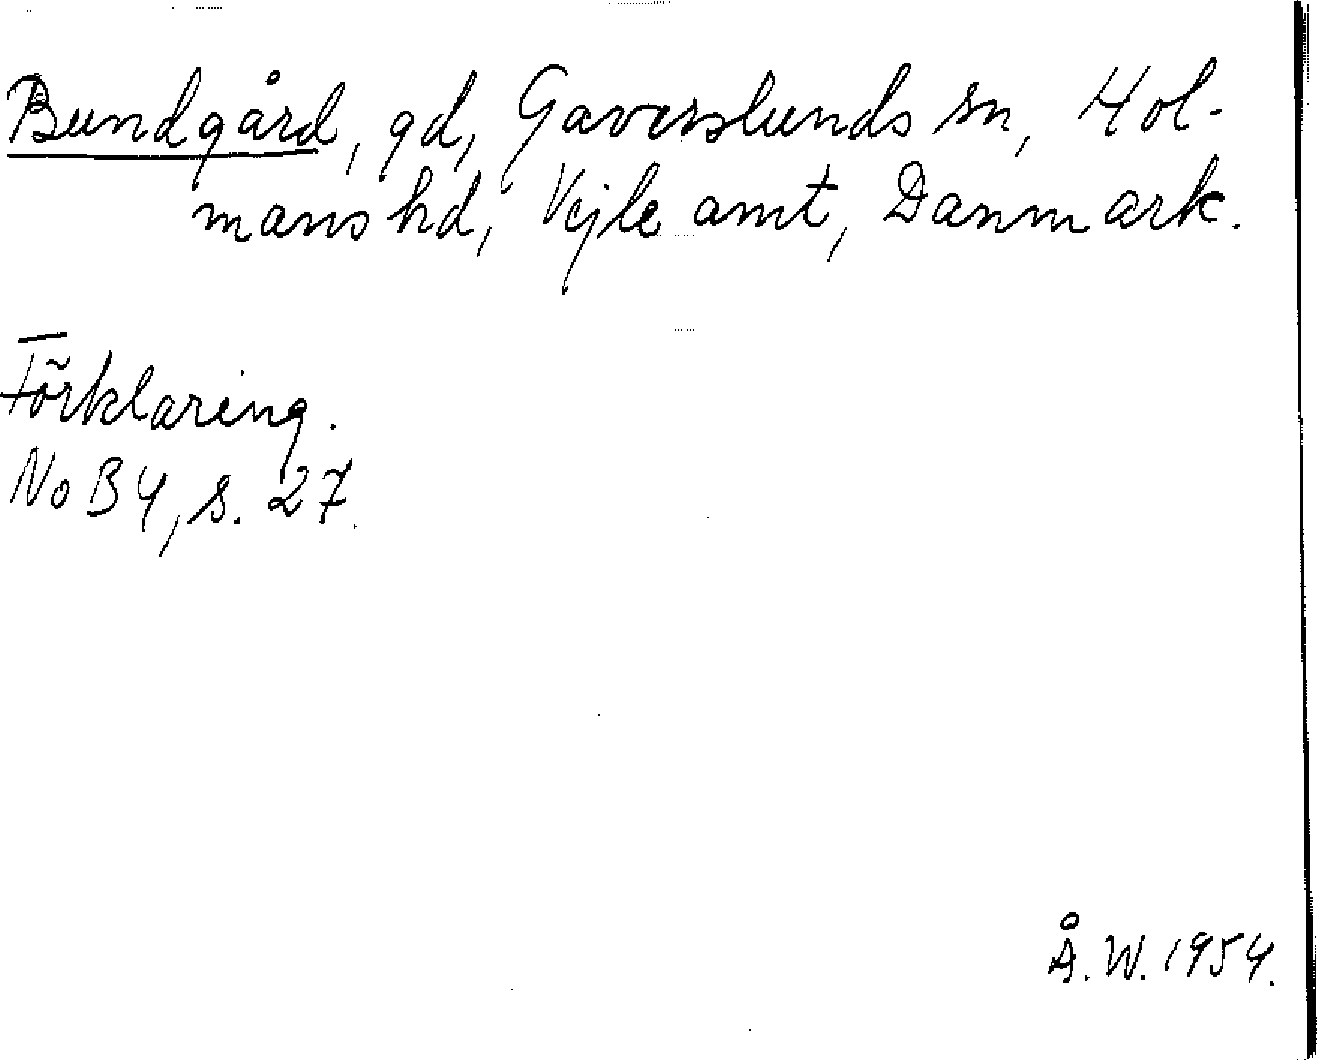 Bundgård, gd, Gaverslunds sn, Hol-
mans hd, Vejle amt, Danmark.
Förklaring.
No B4, s. 27.
Å. W. 1954.